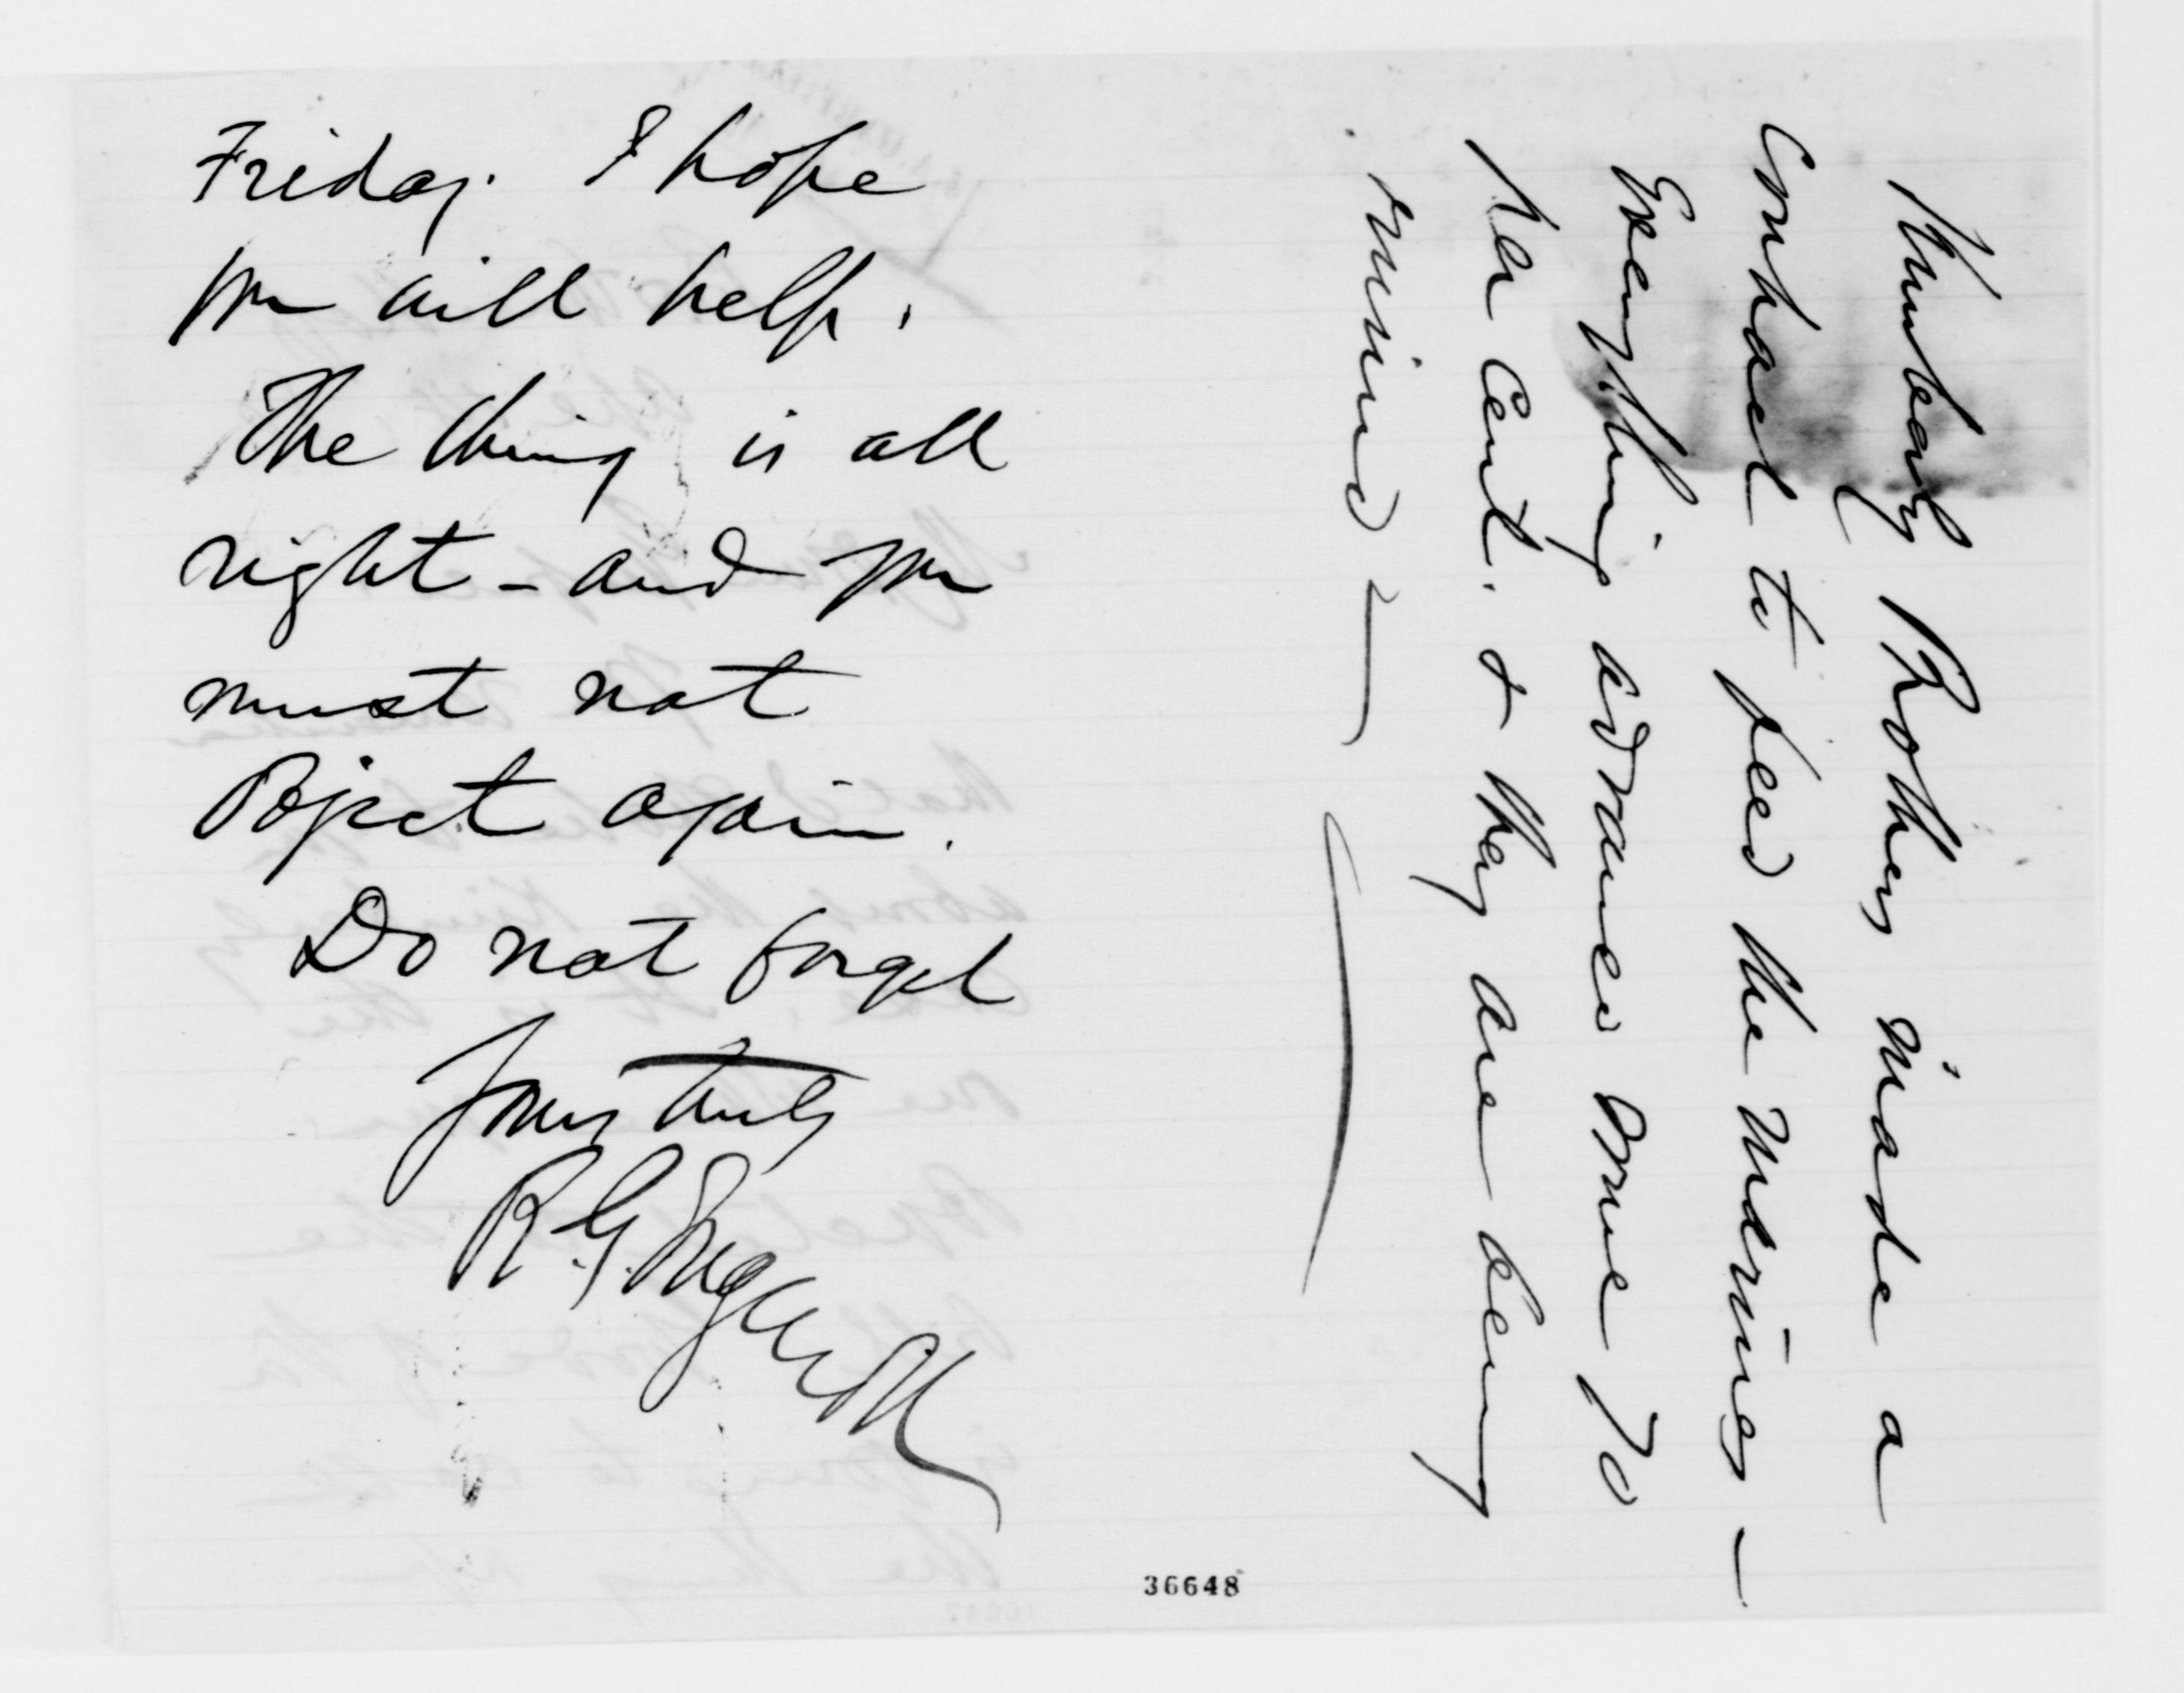 Friday. I hope
you will help.
The thing is all
right - and you
must not
Object again.
Do not forget
Yours truly
R. G. Ingersoll
Kimberly Brothers made a
contract to feed the Marines -
Everything advanced some 70
per cent. & they are being
ruined -
36648